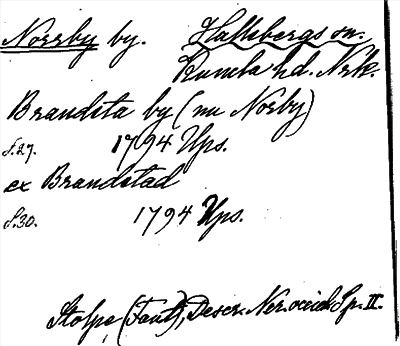 Norrby by. Hallsbergs sn.
Kumla hd. Nrk.
Brandsta by (nu Norby)
s.27. 1794 Ups.
ex Brandstad
s.30. 1794 Ups.
Stolpe, (Faut), Descr. Ner. occid. Sp. II.